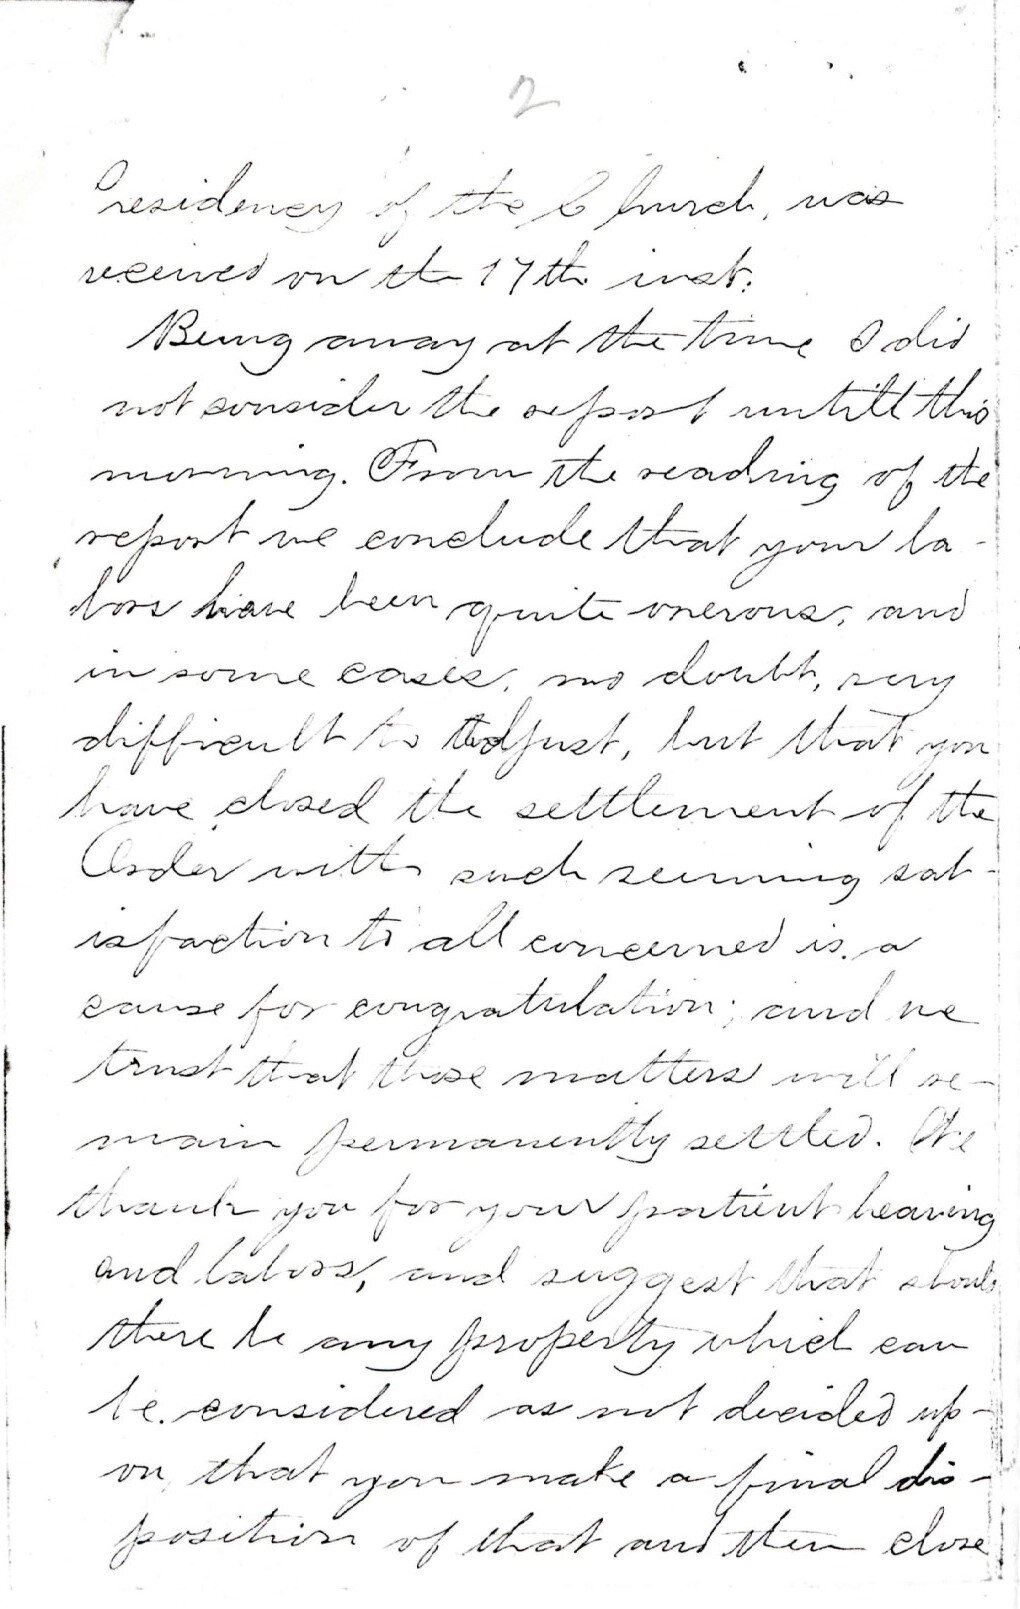 2
Presidency of the Church, was
received on the 17th inst.
Being away at the time I did
not consider the report untill this
morning. From the reading of the
report we conclude that your la-
bors have been quite onerous, and
in some cases, no doubt, very
difficult to adjust, but that you
have closed the settlement of the
Order with such seeming sat-
isfaction to all concerned is a
cause for congratulation; and we
trust that these matters will re-
main permanently settled. We
thank you for your patient hearing
and labors, and suggest that should
there be any property which can
be considered as not decided up-
on, that you make a final dis-
position of that and then close